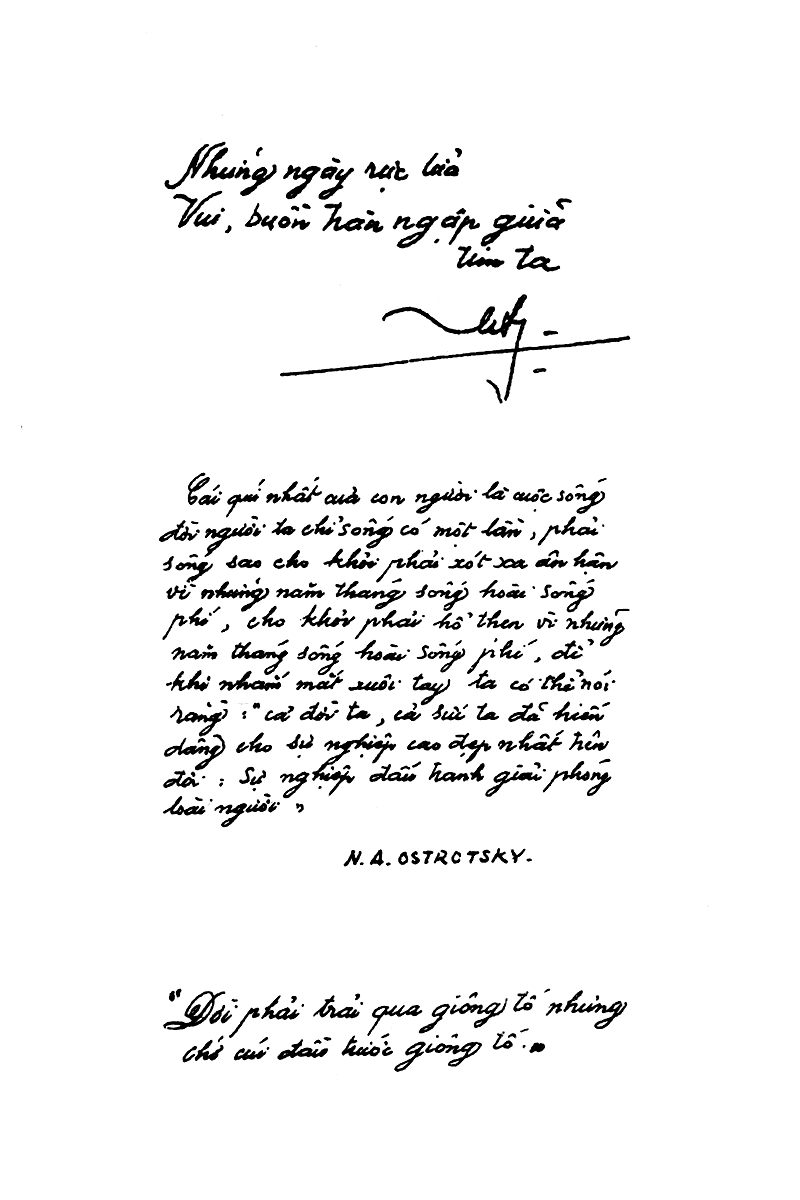 Những ngày rực lửa
Vui, buồn tràn ngập giữa
tim ta
Cái quí nhất của con người là cuộc sống
đời người ta chỉ sống có một lần, phải
sống sao cho khỏi phải xót xa ân hận
vì những năm tháng sống hoài sống
phí, cho khỏi phải hổ thẹn vì những
năm tháng sống hoài sống phí, để
khi nhắm mắt xuôi tay ta có thể nói
rằng : "cả đời ta, cả sức ta đã hiến
dâng cho sự nghiệp cao đẹp nhất trên
đời : Sự nghiệp đấu tranh giải phóng
loài người"
N. A. OSTROTSKY.
"Đời phải trải qua giông tố nhưng
chớ cúi đầu trước giông tố."